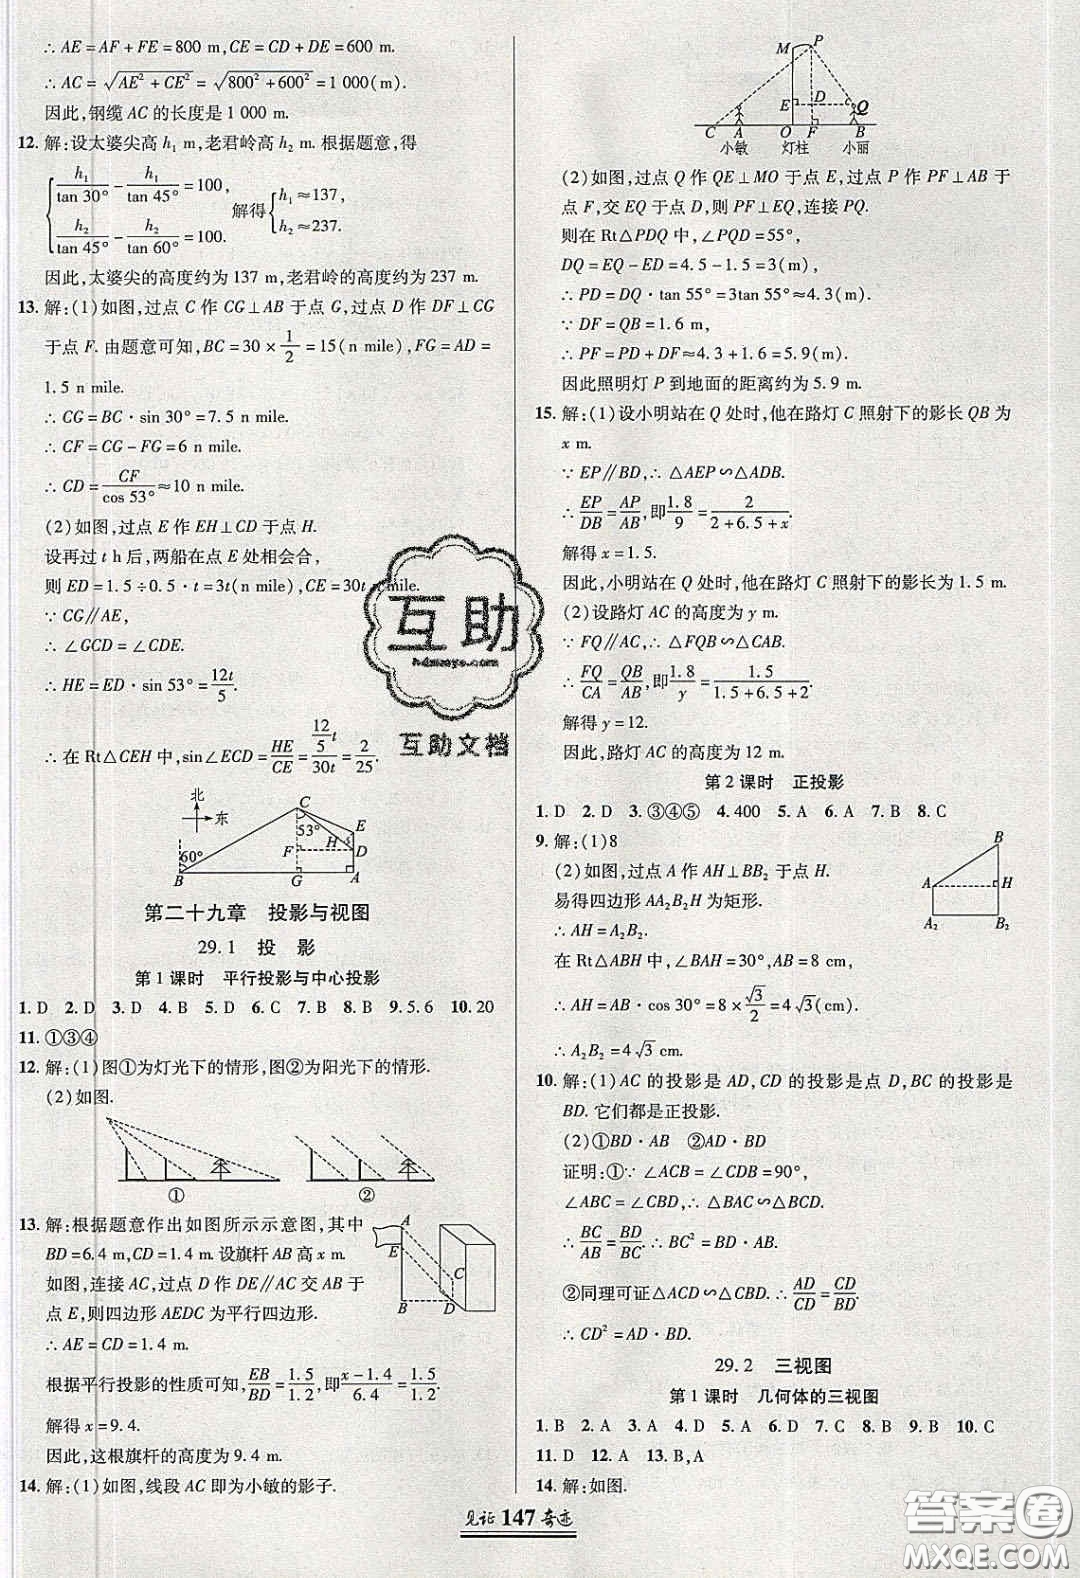 ∴ AE=AF+FE=800 m,CE=CD+DE=600 m.
∴ AC=√(AE²+CE²)=√(800²+600²)=1 000(m).
因此,钢缆 AC 的长度是 1 000 m.
12. 解:设太婆尖高 h₁ m,老君岭高 h₂ m. 根据题意,得
{ h₁/tan 30° − h₁/tan 45° =100, h₂/tan 45° − h₂/tan 60° =100. 解得{ h₁≈137, h₂≈237.
因此,太婆尖的高度约为 137 m,老君岭的高度约为 237 m.
13. 解:(1)如图,过点 C 作 CG⊥AB 于点 G,过点 D 作 DF⊥CG
于点 F. 由题意可知,BC=30×1/2=15(n mile),FG=AD=
1.5 n mile.
∴ CG=BC·sin 30°=7.5 n mile.
∴ CF=CG−FG=6 n mile.
∴ CD=CF/cos 53°≈10 n mile.
(2)如图,过点 E 作 EH⊥CD 于点 H.
设再过 t h 后,两船在点 E 处相会合,
则 ED=1.5÷0.5·t=3t(n mile),CE=30t n mile.
∵ CG∥AE,
∴ ∠GCD=∠CDE.
∴ HE=ED·sin 53°=12t/5.
∴ 在 Rt△CEH 中,sin∠ECD=HE/CE=(12/5 t)/30t=2/25.
北
东
C
53°
E
H
F
D
60°
B
G
A
第二十九章 投影与视图
29.1 投 影
第 1 课时 平行投影与中心投影
1. D 2. D 3. D 4. B 5. D 6. C 7. B 8. B 9. 5.6 10. 20
11. ①③④
12. 解:(1)图①为灯光下的情形,图②为阳光下的情形.
(2)如图.
① ②
13. 解:根据题意作出如图所示示意图,其中
BD=6.4 m,CD=1.4 m. 设旗杆 AB 高 x m.
如图,连接 AC,过点 D 作 DE∥AC 交 AB 于
点 E,则四边形 AEDC 为平行四边形.
∴ AE=CD=1.4 m.
A
E
C
B
D
根据平行投影的性质可知,EB/BD=1.5/1.2,即(x−1.4)/6.4=1.5/1.2.
解得 x=9.4.
因此,这根旗杆的高度为 9.4 m.
14. 解:(1)如图,线段 AC 即为小敏的影子.
M P
E D Q
C A O F B
小敏 灯柱 小丽
(2)如图,过点 Q 作 QE⊥MO 于点 E,过点 P 作 PF⊥AB 于
点 F,交 EQ 于点 D,则 PF⊥EQ,连接 PQ.
则在 Rt△PDQ 中,∠PQD=55°,
DQ=EQ−ED=4.5−1.5=3(m).
∴ PD=DQ·tan 55°=3tan 55°≈4.3(m).
∵ DF=QB=1.6 m,
∴ PF=PD+DF≈4.3+1.6=5.9(m).
因此照明灯 P 到地面的距离约为 5.9 m.
15. 解:(1)设小明站在 Q 处时,他在路灯 C 照射下的影长 QB 为
x m.
∵ EP∥BD,∴ △AEP∽△ADB.
∴ EP/DB=AP/AB,即1.8/9=2/(2+6.5+x).
解得 x=1.5.
因此,小明站在 Q 处时,他在路灯 C 照射下的影长为 1.5 m.
(2)设路灯 AC 的高度为 y m.
∵ FQ∥AC,∴ △FQB∽△CAB.
∴ FQ/CA=QB/AB,即1.8/y=1.5/(1.5+6.5+2).
解得 y=12.
因此,路灯 AC 的高度为 12 m.
第 2 课时 正投影
1. D 2. D 3. ③④⑤ 4. 400 5. A 6. A 7. B 8. C
9. 解:(1)8
(2)如图,过点 A 作 AH⊥BB₂ 于点 H.
易得四边形 AA₂B₂H 为矩形.
∴ AH=A₂B₂.
在 Rt△ABH 中,∠BAH=30°,AB=8 cm,
∴ AH=AB·cos 30°=8×√3/2=4√3(cm).
∴ A₂B₂=4√3 cm.
B
A
H
A₂ B₂
10. 解:(1)AC 的投影是 AD,CD 的投影是点 D,BC 的投影是
BD. 它们都是正投影.
(2)①BD·AB ②AD·BD
证明:①∵ ∠ACB=∠CDB=90°,
∠ABC=∠CBD,∴ △BAC∽△BCD.
∴ BC/AB=BD/BC.∴ BC²=BD·AB.
②同理可证△ACD∽△CBD.∴ AD/CD=CD/BD.
∴ CD²=AD·BD.
29.2 三视图
第 1 课时 几何体的三视图
1. B 2. A 3. A 4. D 5. A 6. D 7. C 8. C 9. B 10. C
11. D 12. A 13. B,A
14. 解:如图.
见证 147 奇迹
互助
互助文档
答案圈
MXQE.COM